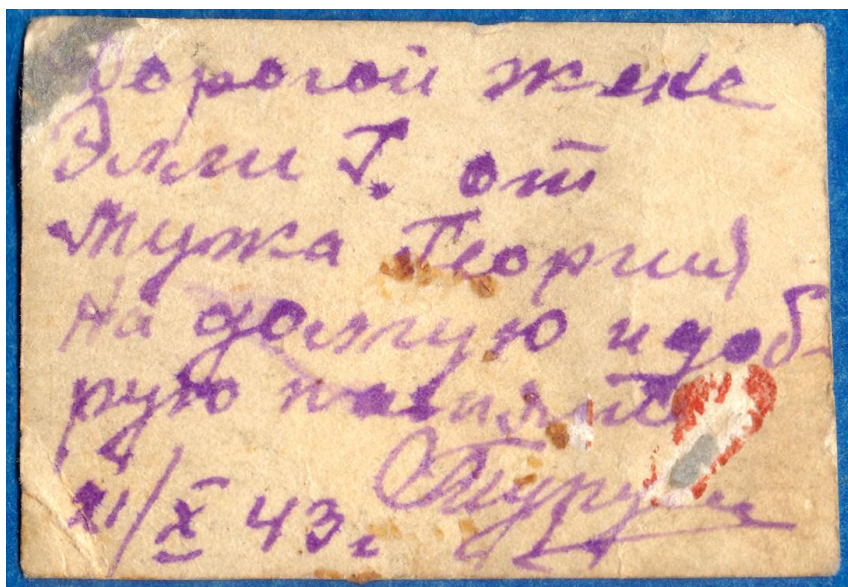 Дорогой жене
Элли Г. от
мужа Георгия
На долгую и доб-
рую память
21/X 43 г